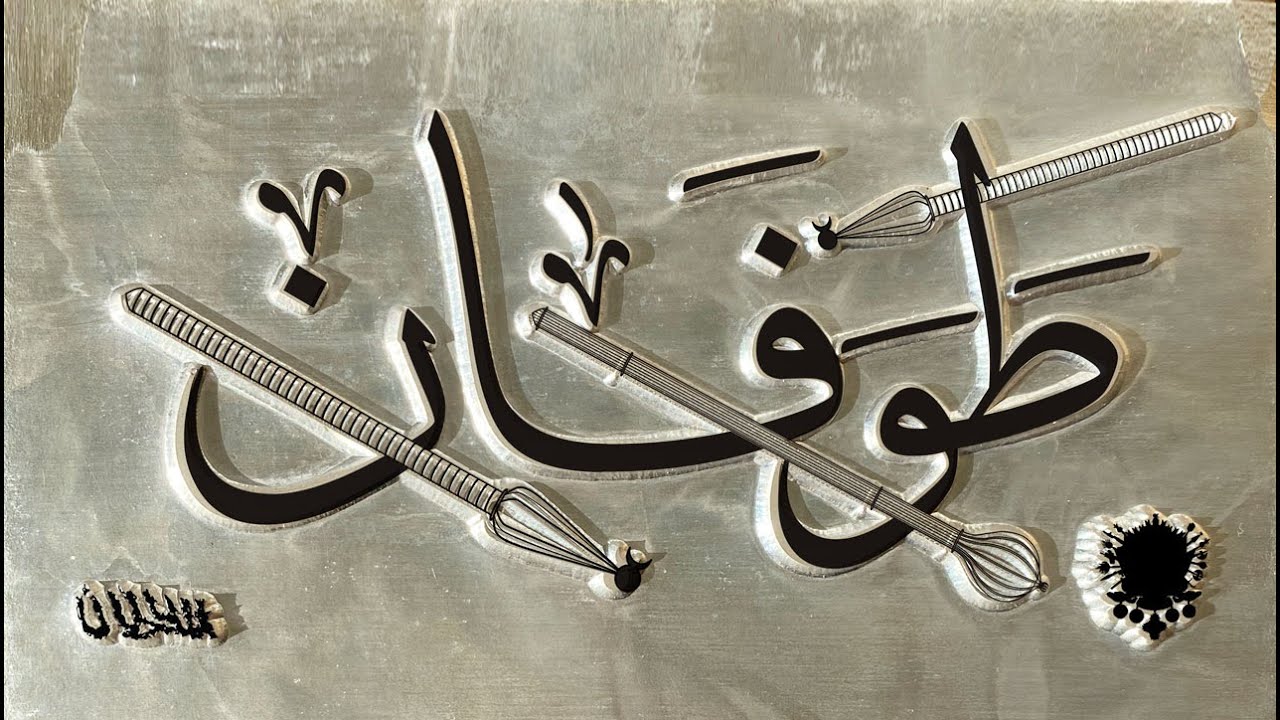 طَوَفَان